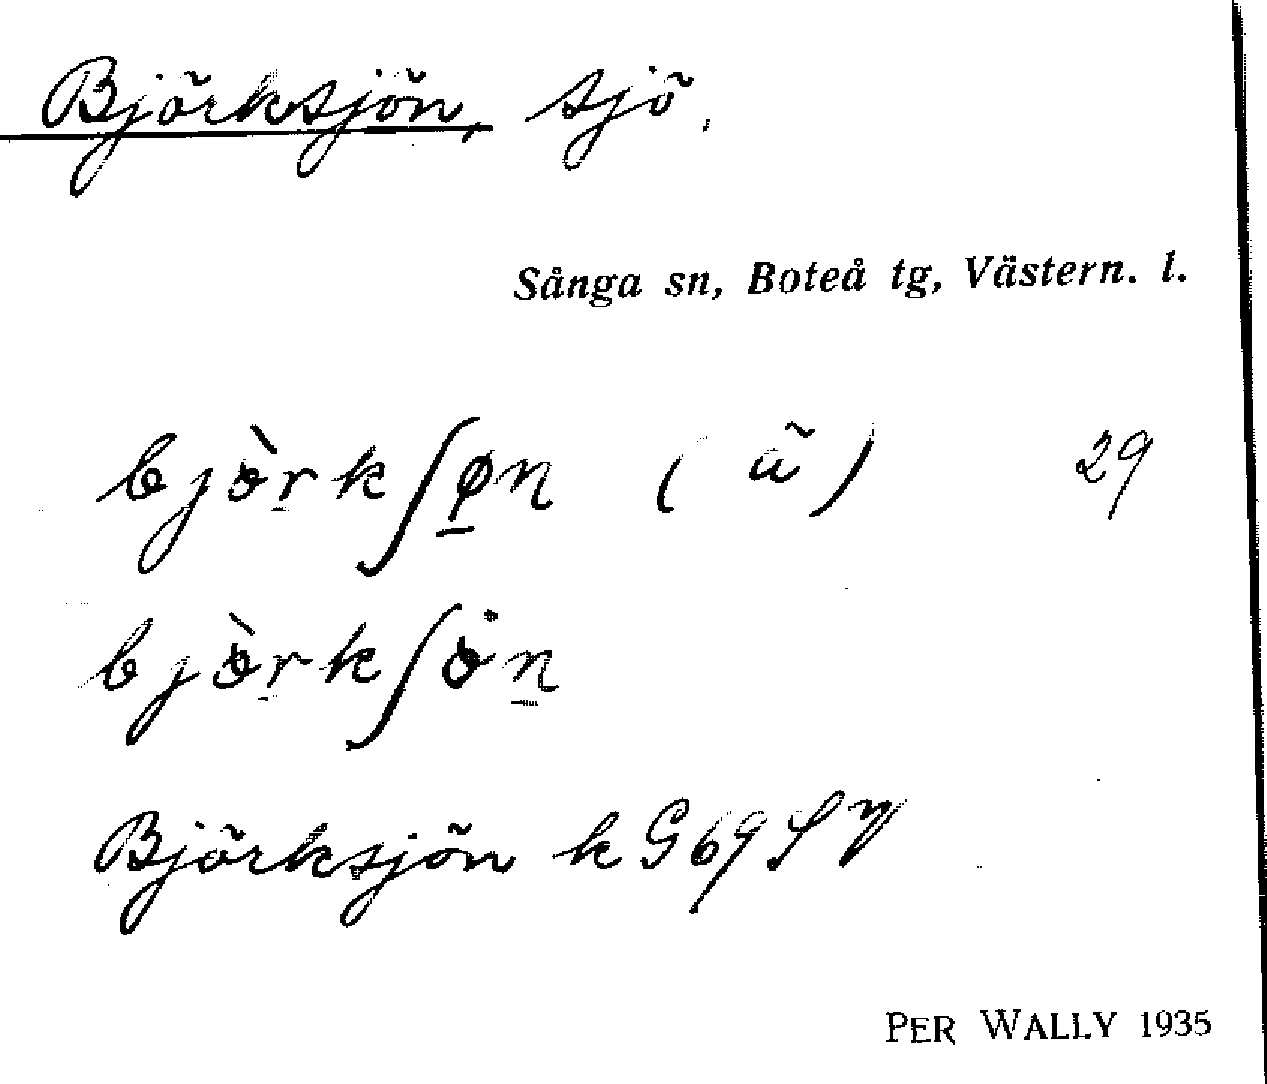 Björksjön, sjö.
Sånga sn, Boteå tg, Västern. l.
bjòrkʃøn (ũ) 29
bjòrkʃön
Björksjön k G 69 S V
PER WALLY 1935